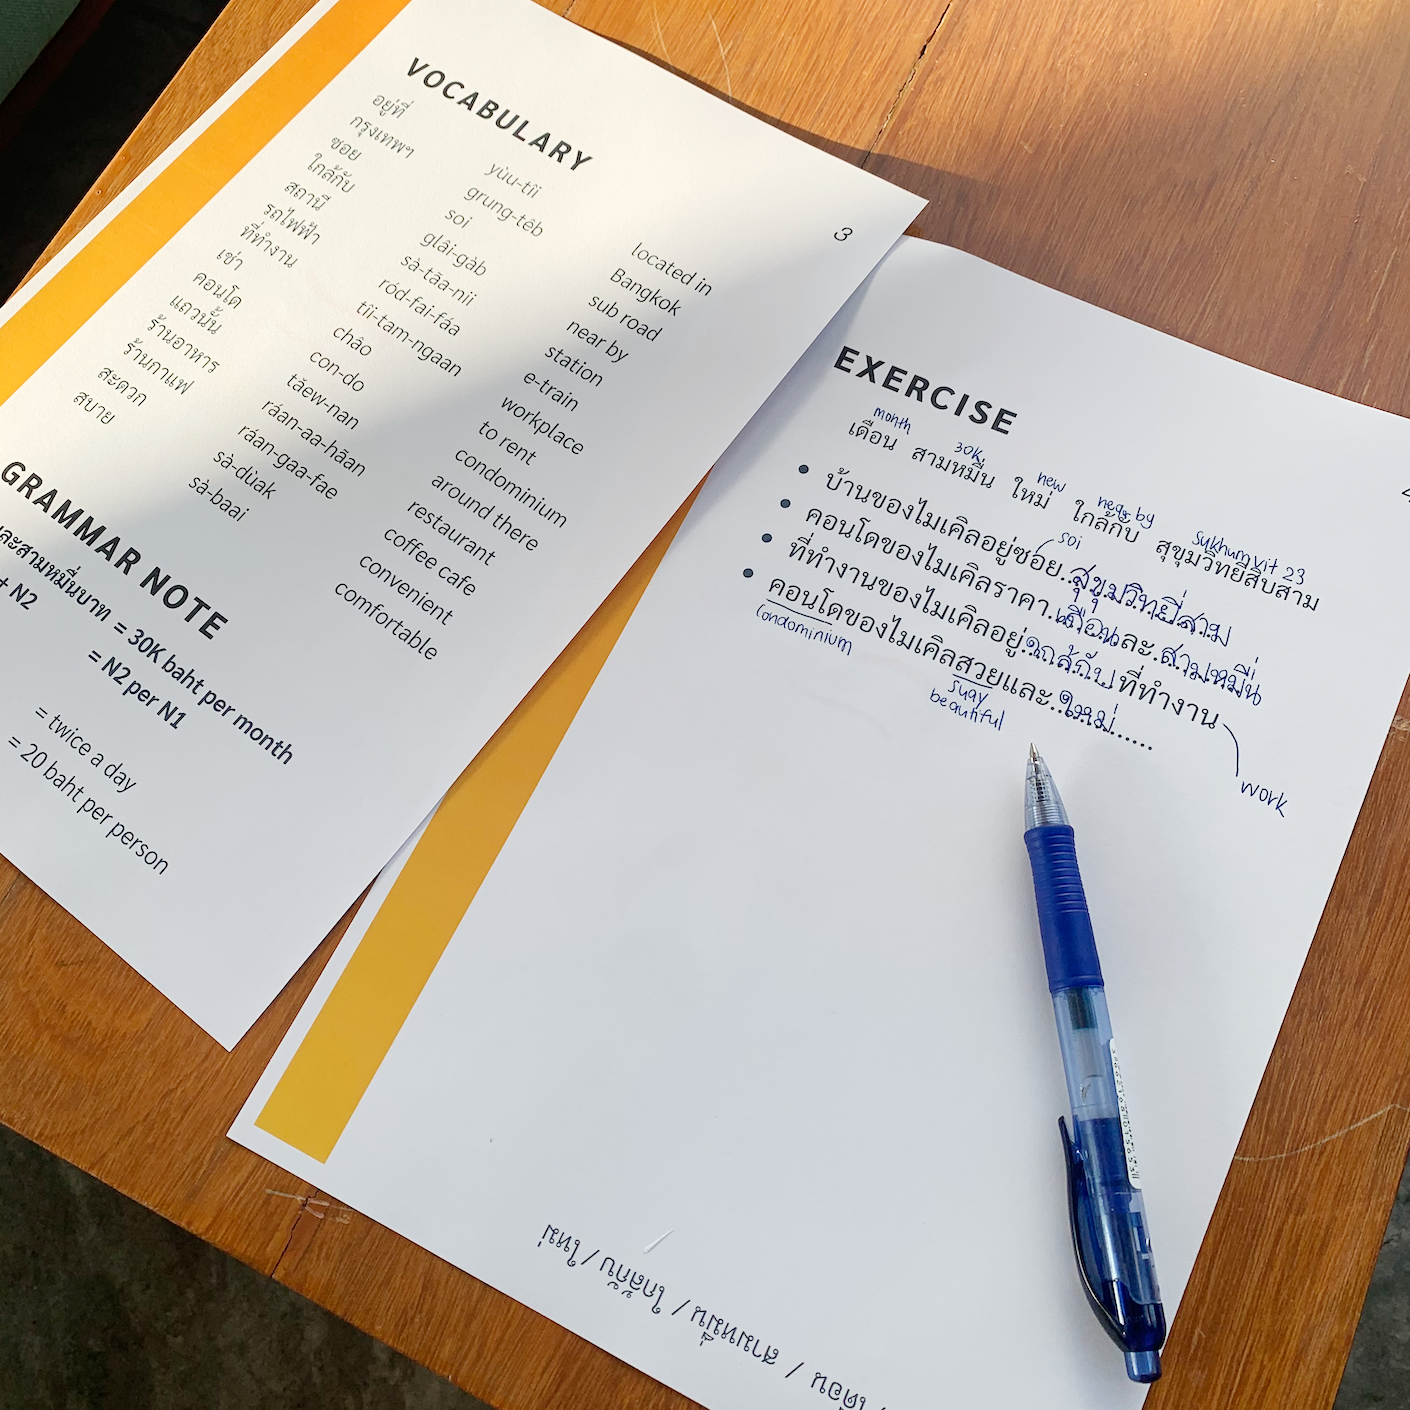 VOCABULARY
อยู่ที่ yùu-tîi located in
กรุงเทพฯ grung-têb Bangkok
ซอย soi sub road
ใกล้กับ glâi-gàb near by
สถานี sà-tăa-nii station
รถไฟฟ้า ród-fai-fáa e-train
ที่ทำงาน tîi-tam-ngaan workplace
เช่า châo to rent
คอนโด con-do condominium
แถวนั้น tăew-nan around there
ร้านอาหาร ráan-aa-hăan restaurant
ร้านกาแฟ ráan-gaa-fae coffee cafe
สะดวก sà-dùak convenient
สบาย sà-baai comfortable
3
GRAMMAR NOTE
ละสามหมื่นบาท = 30K baht per month
+ N2 = N2 per N1
= twice a day
= 20 baht per person
EXERCISE
month 30K new near by Sukhumvit 23
เดือน สามหมื่น ใหม่ ใกล้กับ สุขุมวิทยี่สิบสาม
soi
• บ้านของไมเคิลอยู่ซอย..สุขุมวิทยี่สาม
• คอนโดของไมเคิลราคา..เดือนละ..สามหมื่น
• ที่ทำงานของไมเคิลอยู่..ใกล้กับที่ทำงาน
• คอนโดของไมเคิลสวยและ..ใหม่......
condominium
suay
beautiful
work
เดือน / สามหมื่น / ใกล้กับ / ใหม่